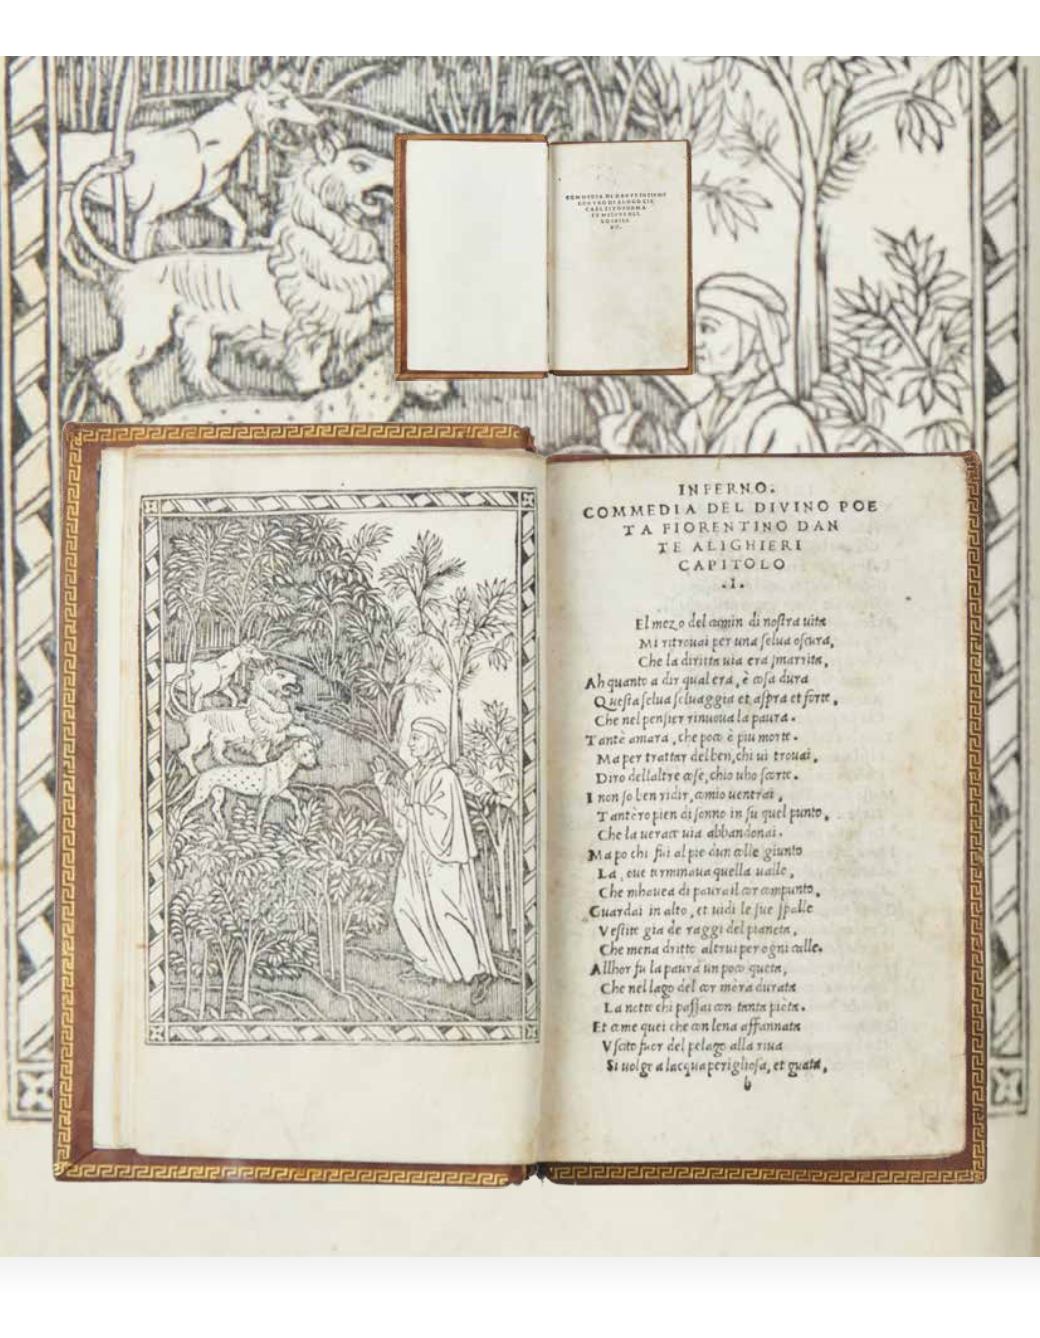 COMMEDIA DI DANTE INSIEME
CON VNO DIALOGO CIR
CA EL SITO FORMA
ET MISVRE DEL
LO INFER
INFERNO.
COMMEDIA DEL DIVINO POE
TA FIORENTINO DAN
TE ALIGHIERI
CAPITOLO
.I.
El mezo del camin di noſtra uita
Mi ritrouai per una ſelua oſcura,
Che la diritta uia era ſmarrita,
Ah quanto a dir qual era, è coſa dura
Queſta ſelua ſeluaggia et aſpra et forte,
Che nel penſier rinuoua la paura.
Tantè amara, che poco è piu morte.
Ma per trattar del ben, chi ui trouai,
Diro dellaltre coſe, chio uho ſcorte.
I non ſo ben ridir, comio uentrai,
Tantèro pien di ſonno in ſu quel punto,
Che la uerace uia abbandonai.
Ma po chi fui al pie dun colle giunto
La, oue terminaua quella ualle,
Che mhauea di paura il cor compunto,
Guardai in alto, et uidi le ſue ſpalle
Veſtite gia de raggi del pianeta,
Che mena dritto altrui per ogni calle.
Allhor fu la paura un poco queta,
Che nel lago del cor mera durata
La notte chi paſſai con tanta pieta.
Et come quei che con lena affannata
Vſcito fuor del pelago alla riua
Si uolge a lacqua periglioſa, et guata,
b